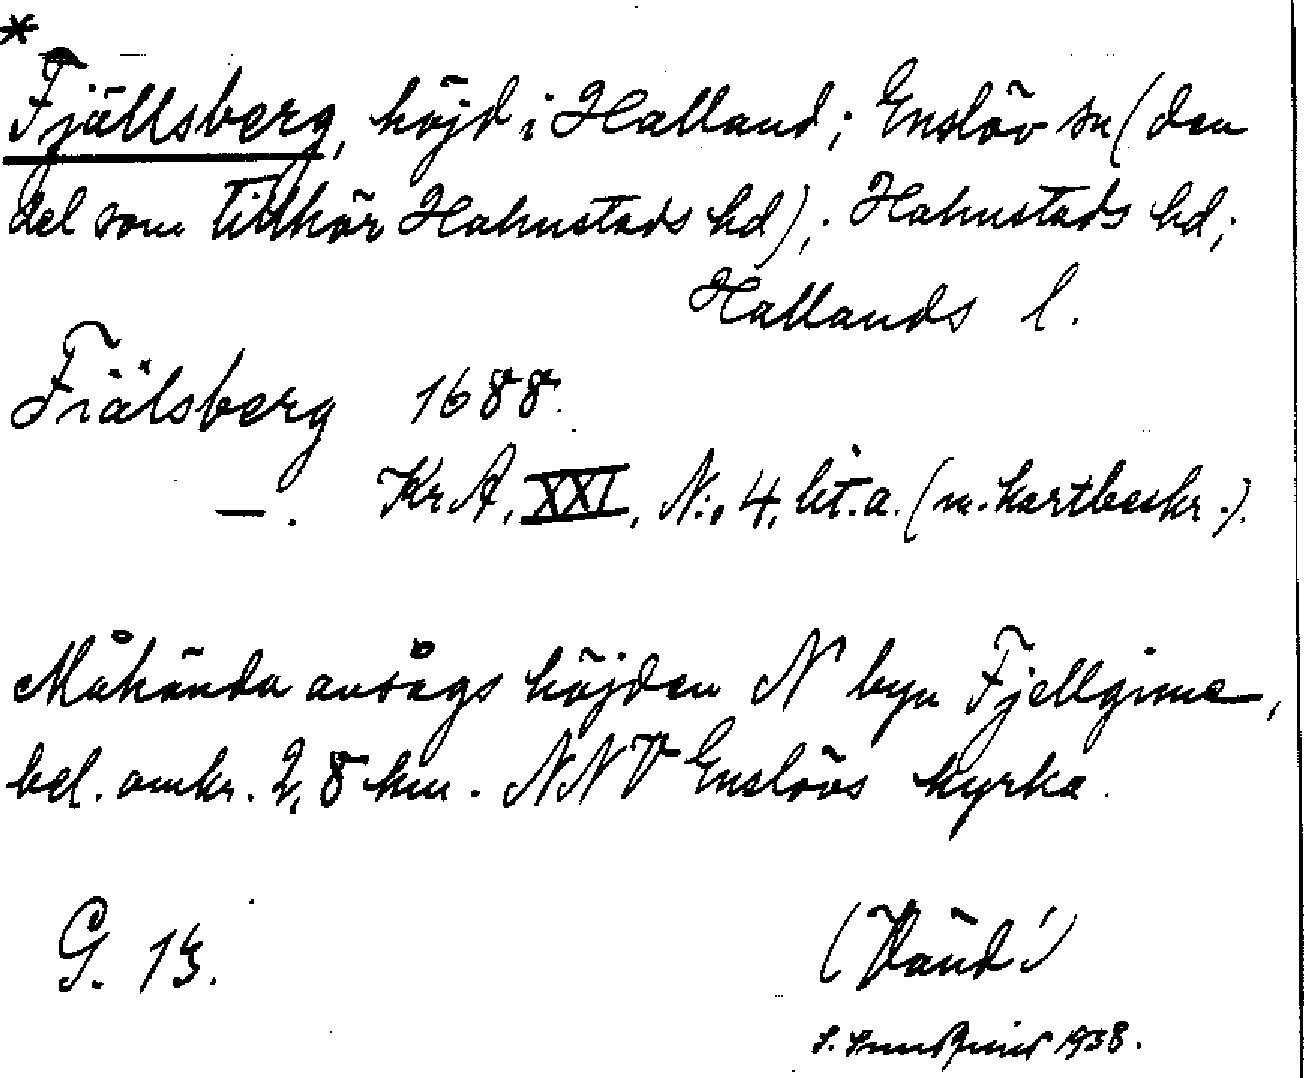 *
Fjällsberg, höjd i Halland; Enslöv sn (den
del som tillhör Halmstads hd); Halmstads hd;
Hallands l.
Fiälsberg 1688.
—. KrA, XXI, N:o 4, lit. a. (m. kartbeskr.).
Måhända avsågs höjden N byn Fjellgime,
bel. omkr. 2,8 km. NNV Enslövs kyrka.
G. 13.
(Vänd!)
1938.